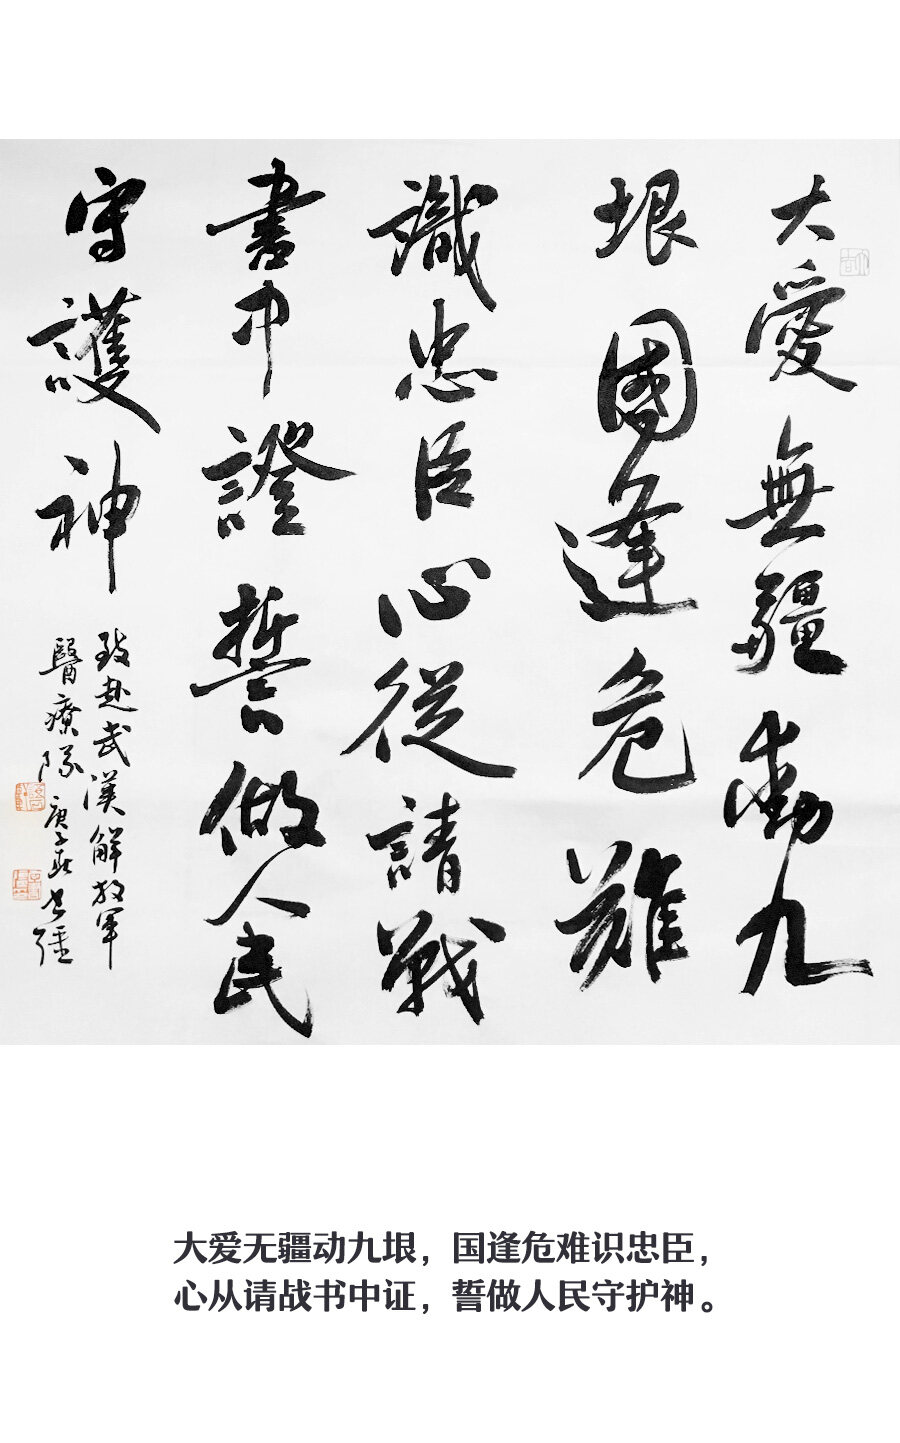 大愛無疆動九
垠國逢危難
識忠臣心從請戰
書中證誓做人民
守護神
致赴武漢解放軍
醫療隊 庚子春
大爱无疆动九垠，国逢危难识忠臣，
心从请战书中证，誓做人民守护神。